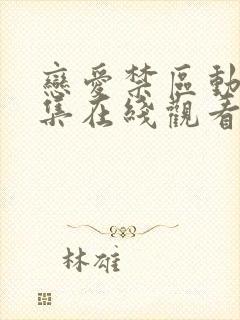 戀愛禁區動
集在綫觀看
林雄